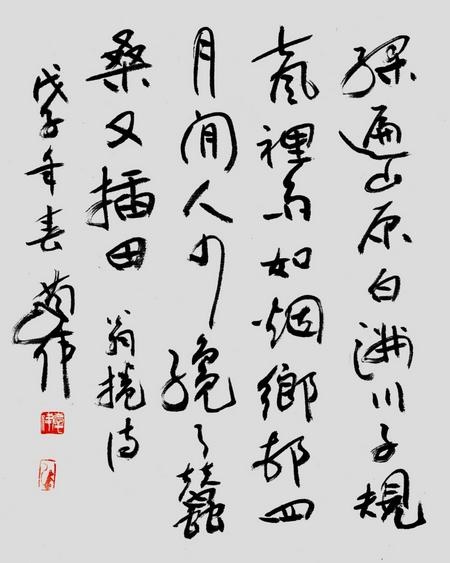 綠遍山原白满川子規
声裡雨如烟鄉邨四
月閒人少纔了蠶
桑又插田 翁捲诗
戊子年春 伟